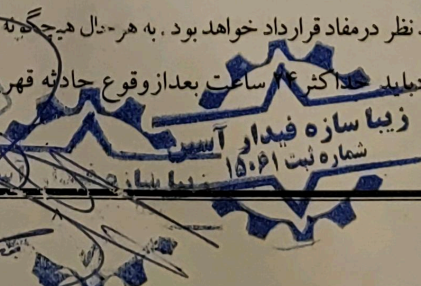 نظر در مفاد قرارداد خواهد بود . به هر حال هیچگونه
حداکثر ۲۴ ساعت بعد از وقوع حادثه قهر
زیبا سازه فیدار آسین
شماره ثبت ۱۵۰۶۱
زیبا سازه